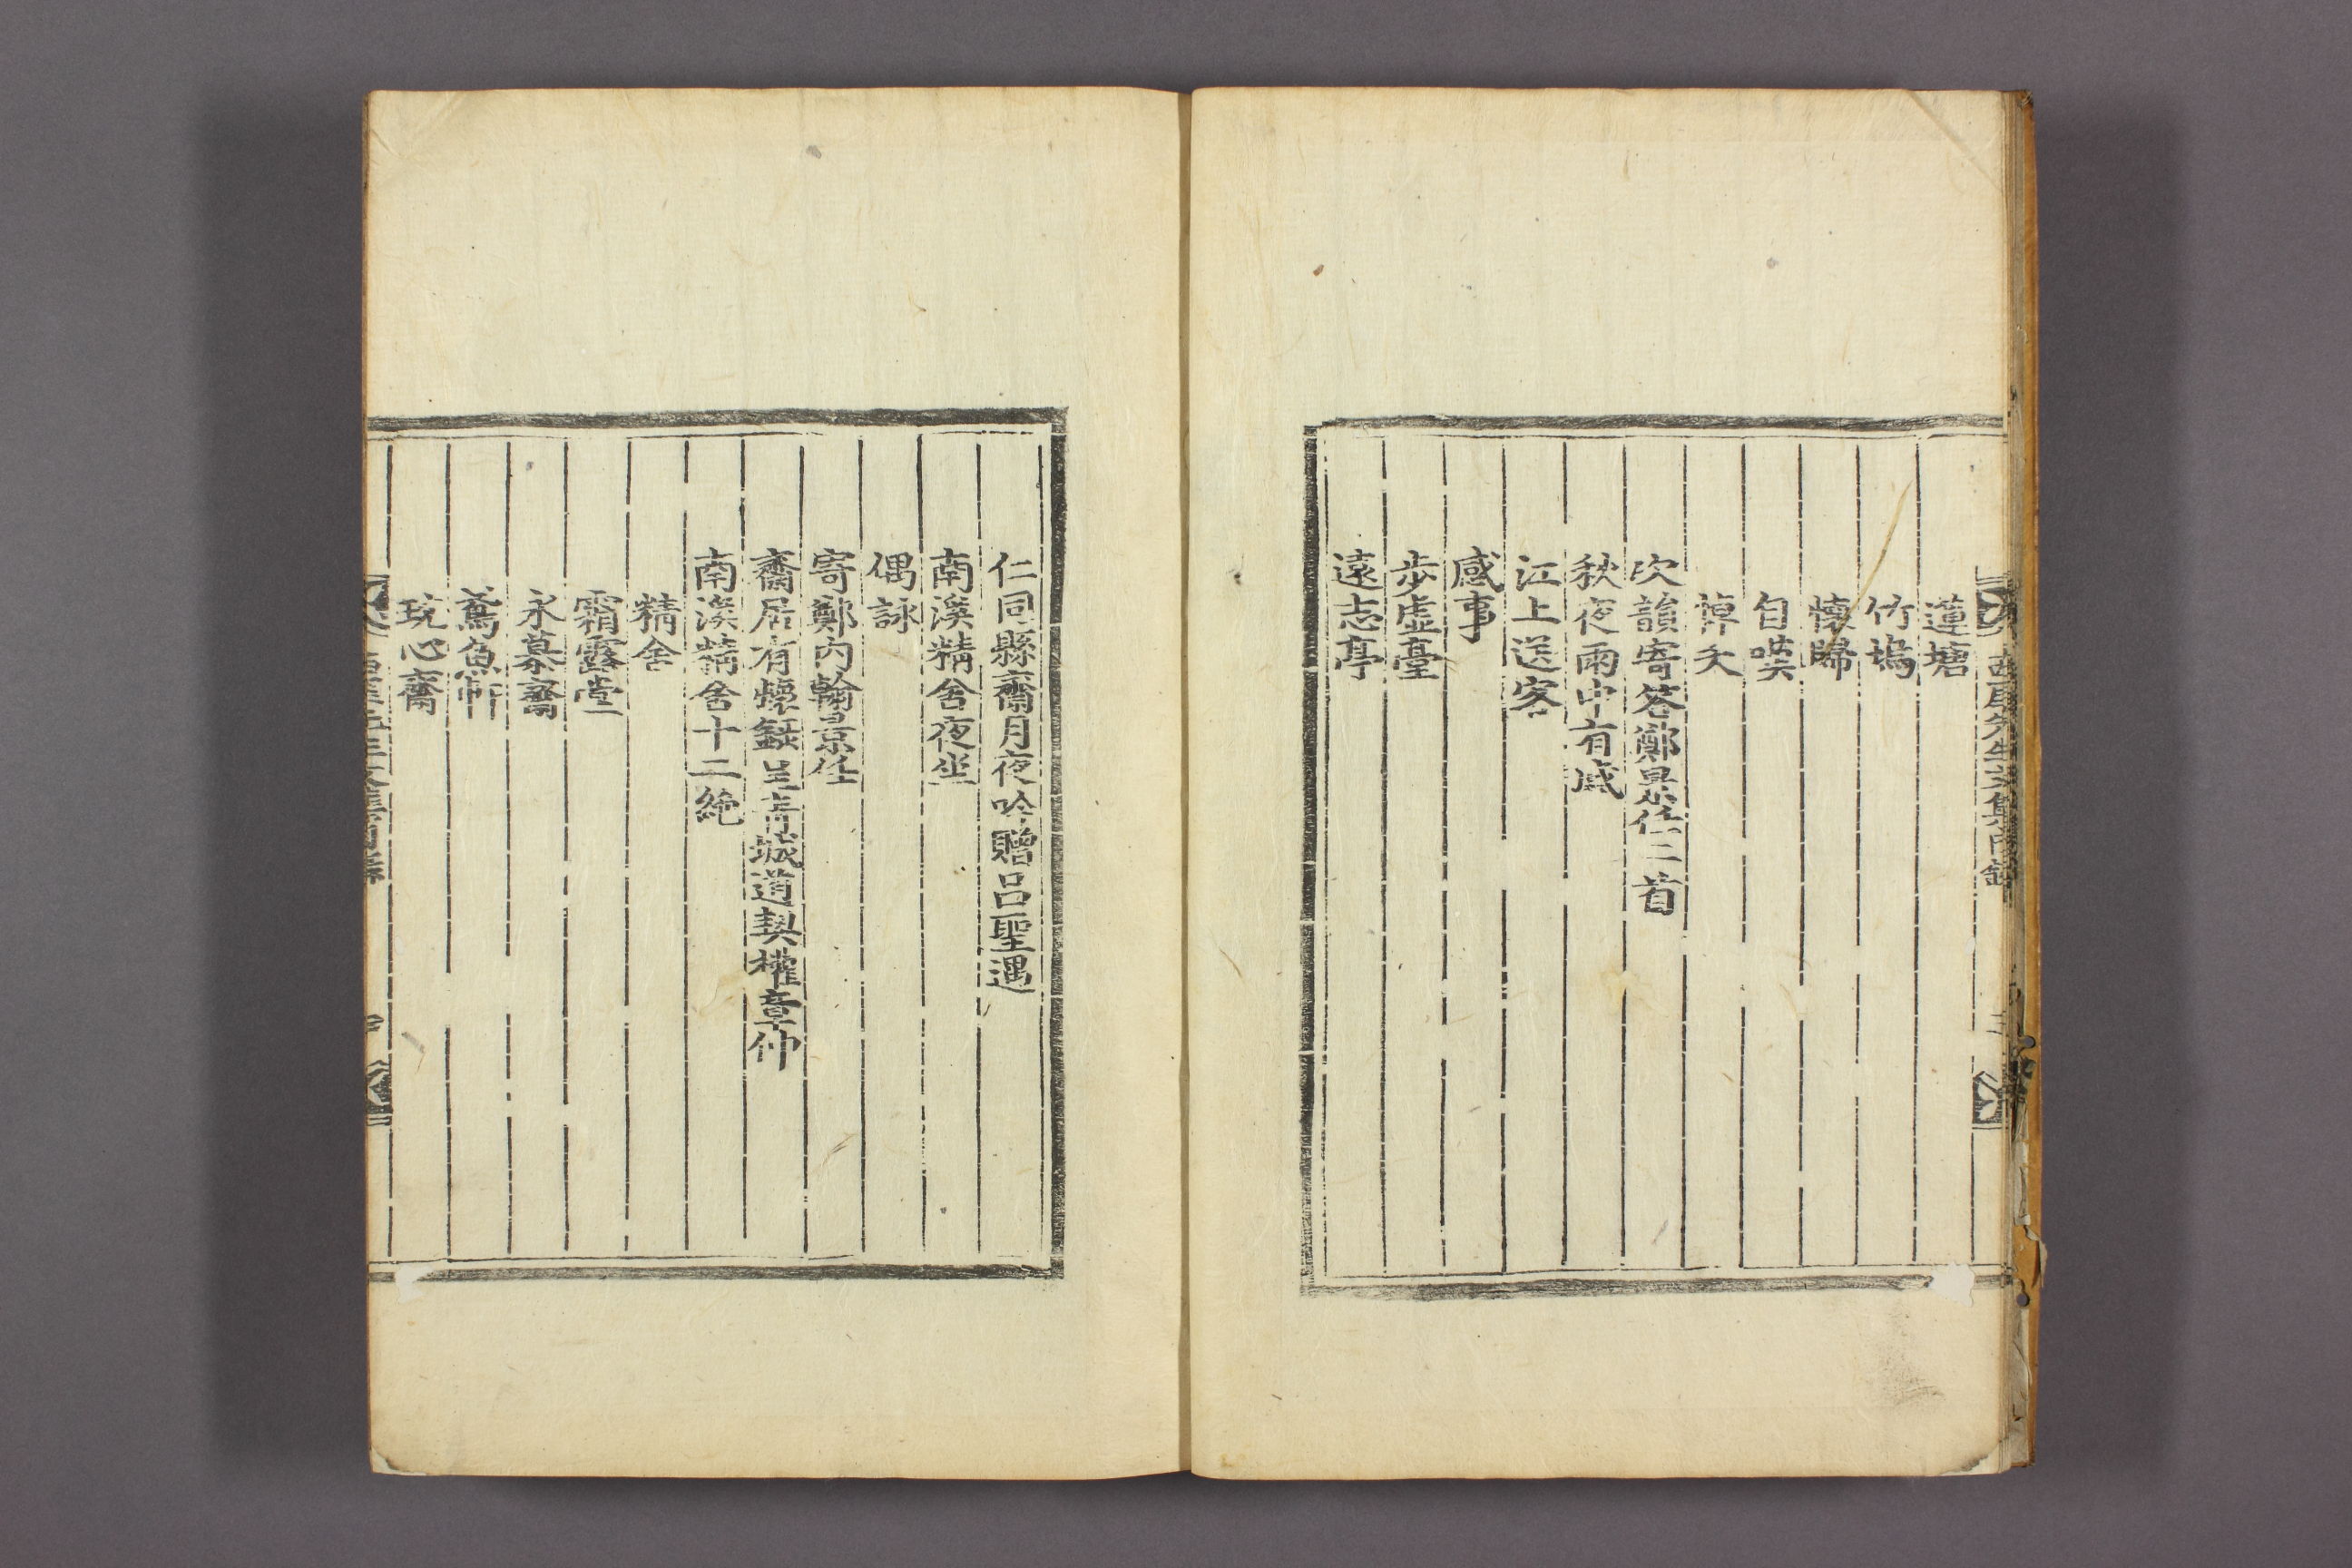 蓮塘
竹塢
懷歸
自嘆
悼夭
次韻寄答鄭景任二首
秋夜雨中有感
江上送客
感事
步虛臺
遠志亭
仁同縣齋月夜吟贈呂聖遇
南溪精舍夜坐
偶詠
寄鄭內翰景任
齋居有懷錄呈青城道契權章仲
南溪精舍十二絶
精舍
霜露堂
永慕齋
鳶魚軒
玩心齋